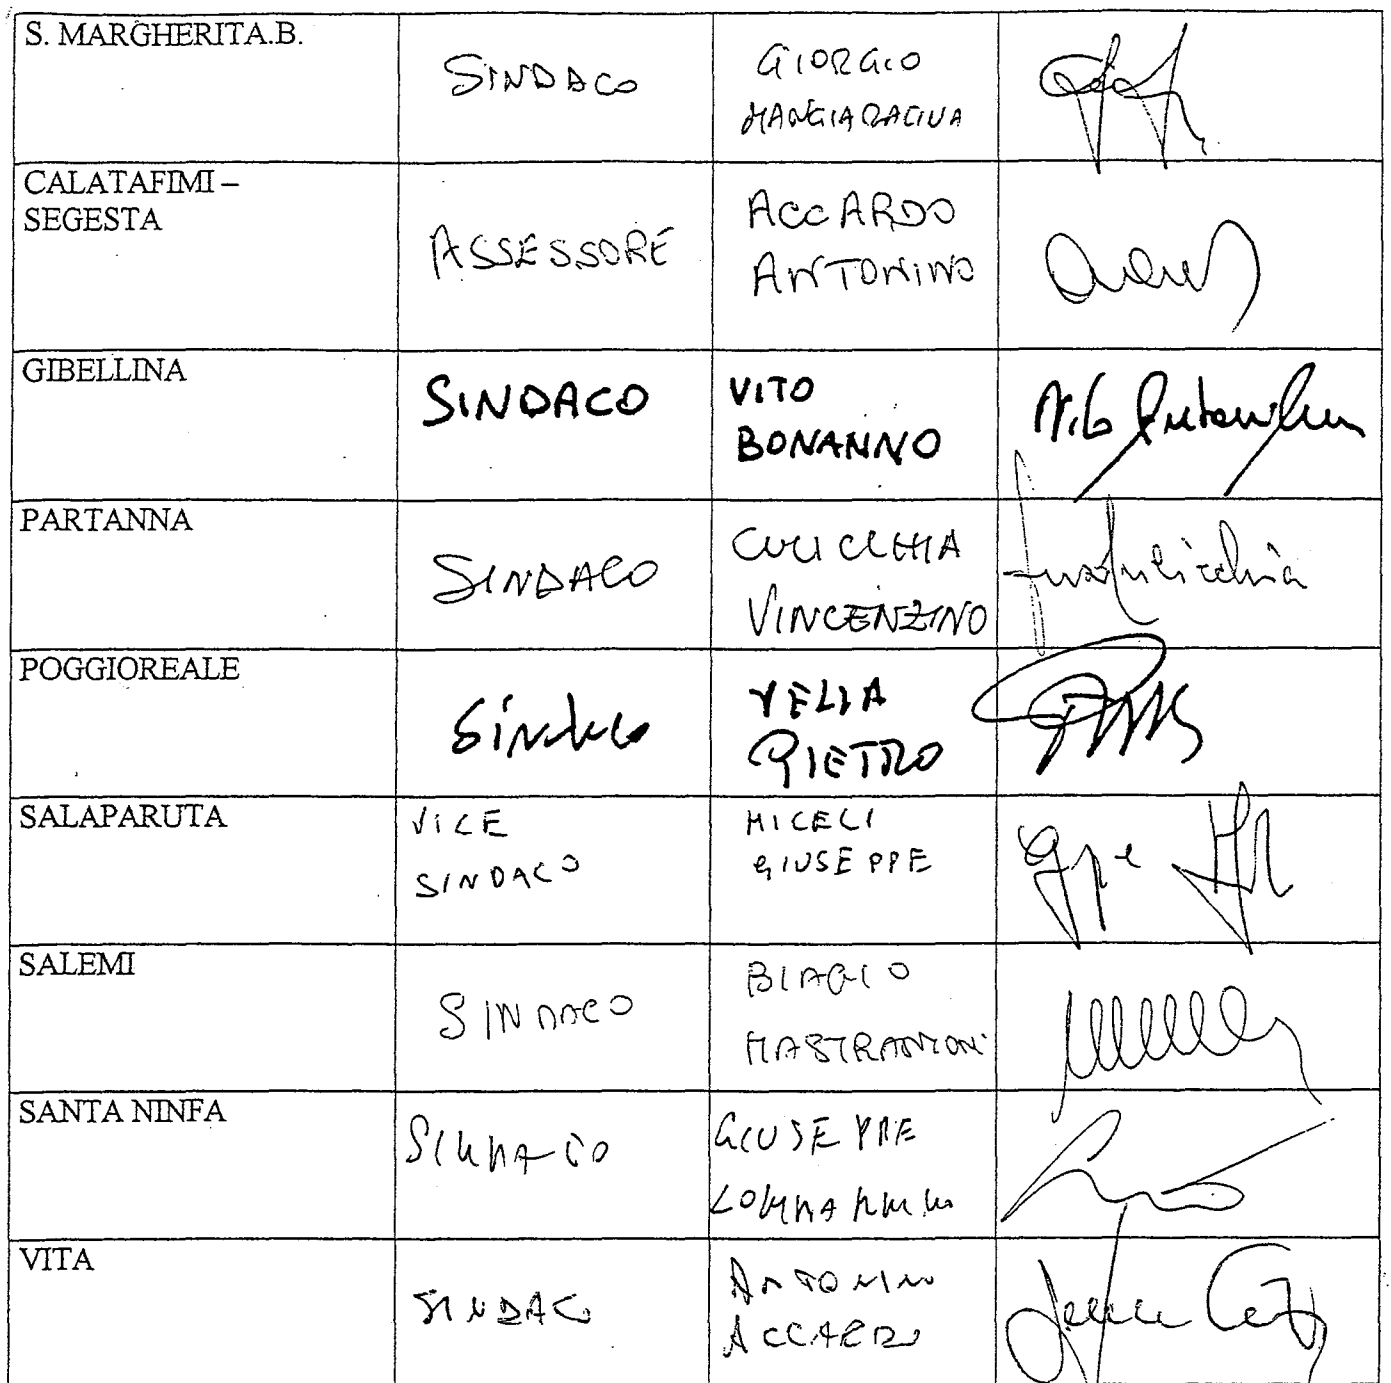 S. MARGHERITA.B.
SINDACO
GIORGIO
MANGIARACINA
CALATAFIMI –
SEGESTA
ASSESSORE
ACCARDO
ANTONINO
GIBELLINA
SINDACO
VITO
BONANNO
PARTANNA
SINDACO
CULICCHIA
VINCENZINO
POGGIOREALE
Sindaco
VELLA
PIETRO
SALAPARUTA
VICE
SINDACO
MICELI
GIUSEPPE
SALEMI
SINDACO
BIAGIO
MASTRANTONI
SANTA NINFA
SINDACO
GIUSEPPE
VITA
SINDACO
ANTONINO
ACCARDO